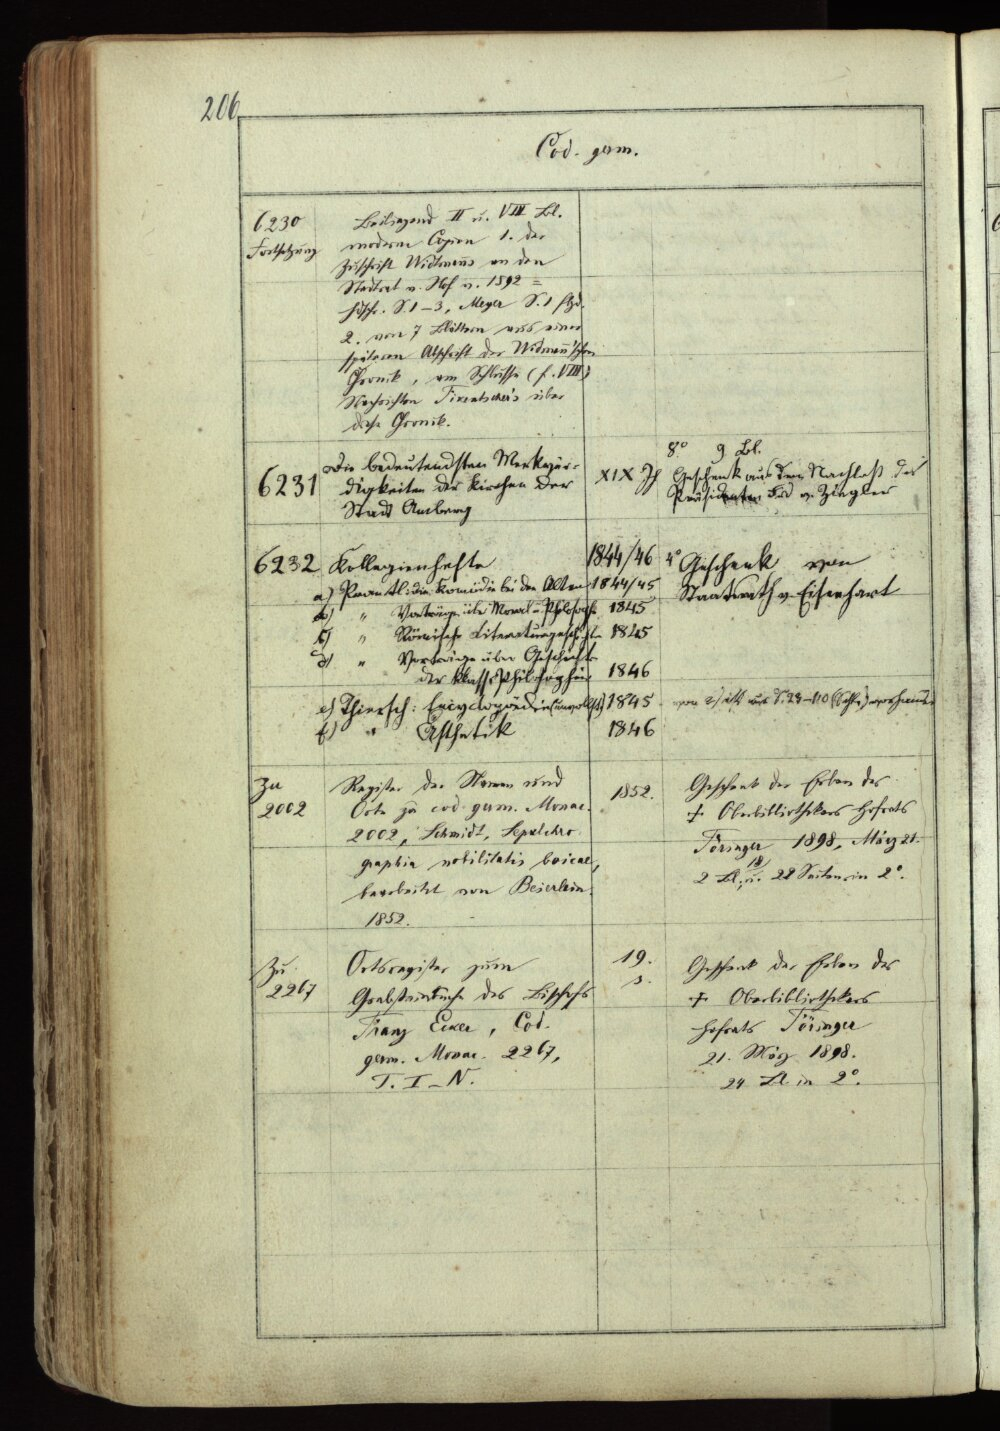 206
Cod. germ.
6230
Fortsetzung
Beiliegend II u. VIII Bl.
moderne Copien 1. der
Zuschrift Widmanns an den
Stadtrat v. Hof v. 1592 =
hdschr. S. 1–3, Meyer S. 1 flgd.
2. von 7 Blättern aus einer
späteren Abschrift der Widmann'schen
Chronik, am Schlusse (f. VIII)
Nachrichten Firentscher's über
diese Chronik.
6231
Die bedeutendsten Merkwür-
digkeiten der Kirchen der
Stadt Amberg
XIX Jh
8° 9 Bl.
Geschenk aus dem Nachlaß des
Präsidenten Frd v. Ziegler
6232
Kollegienhefte
1844/46
4° Geschenk von
Staatsrath v. Eisenhart
a) Prantl: die Komödie bei den Alten 1844/45
b) " Vorträge über Moral-Philosoph. 1845
c) " Römische Literaturgeschichte 1845
d) " Vorträge über Geschichte
der klass. Philosophie 1846
e) Thiersch: Encyclopädie (unvollst.) 1845
von e) ist nur S. 23–110 vorhanden
f) " Ästhetik 1846
Zu
2002
Register der Namen und
Orte zu cod. germ. Monac.
2002, Schmidt, Sepulchro-
graphia nobilitatis boicae,
bearbeitet von Beierlein.
1852.
1852.
Geschenk der Erben des
† Oberbibliothekars Hofrats
Föringer 1898, März 21.
2 Bl. u. 18 28 Seiten in 2°.
Zu
2267
Ortsregister zum
Grabsteinbuche des Bischofs
Franz Ecker, Cod.
germ. Monac. 2267,
T. I–IV.
19.
s.
Geschenk der Erben des
† Oberbibliothekars
Hofrats Föringer
21. März 1898.
24 Bl. in 2°.